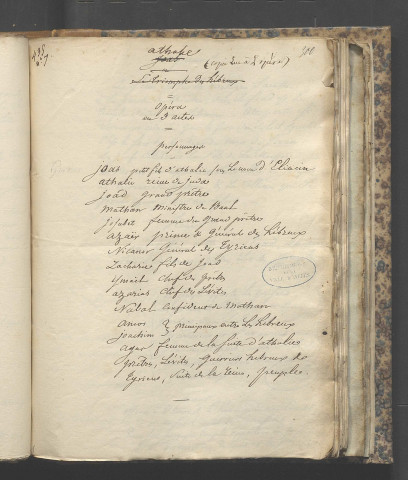 athalie
Joas
(copie due à l'opéra)
300
Le triomphe des hébreux
opéra
en 3 actes
personnages
Joas petit fils d'athalie sous le nom d'Eliacin
athalie reine de Juda
Joad grand prêtre
Mathan Ministre de Baal
Josabet femme du Grand prêtre
azaër prince & Général des hébreux
Nicanor Général des Tyriens
Zacharie fils de Joad
Ismaël chef des prêtres
azarias chef des Lévites
Nabal confident de Mathan
amos
Joachim } principaux entre les hébreux
agar femme de la suite d'athalie
prêtres, Lévites, Guerriers hébreux &
Tyriens, suite de la reine, peuples